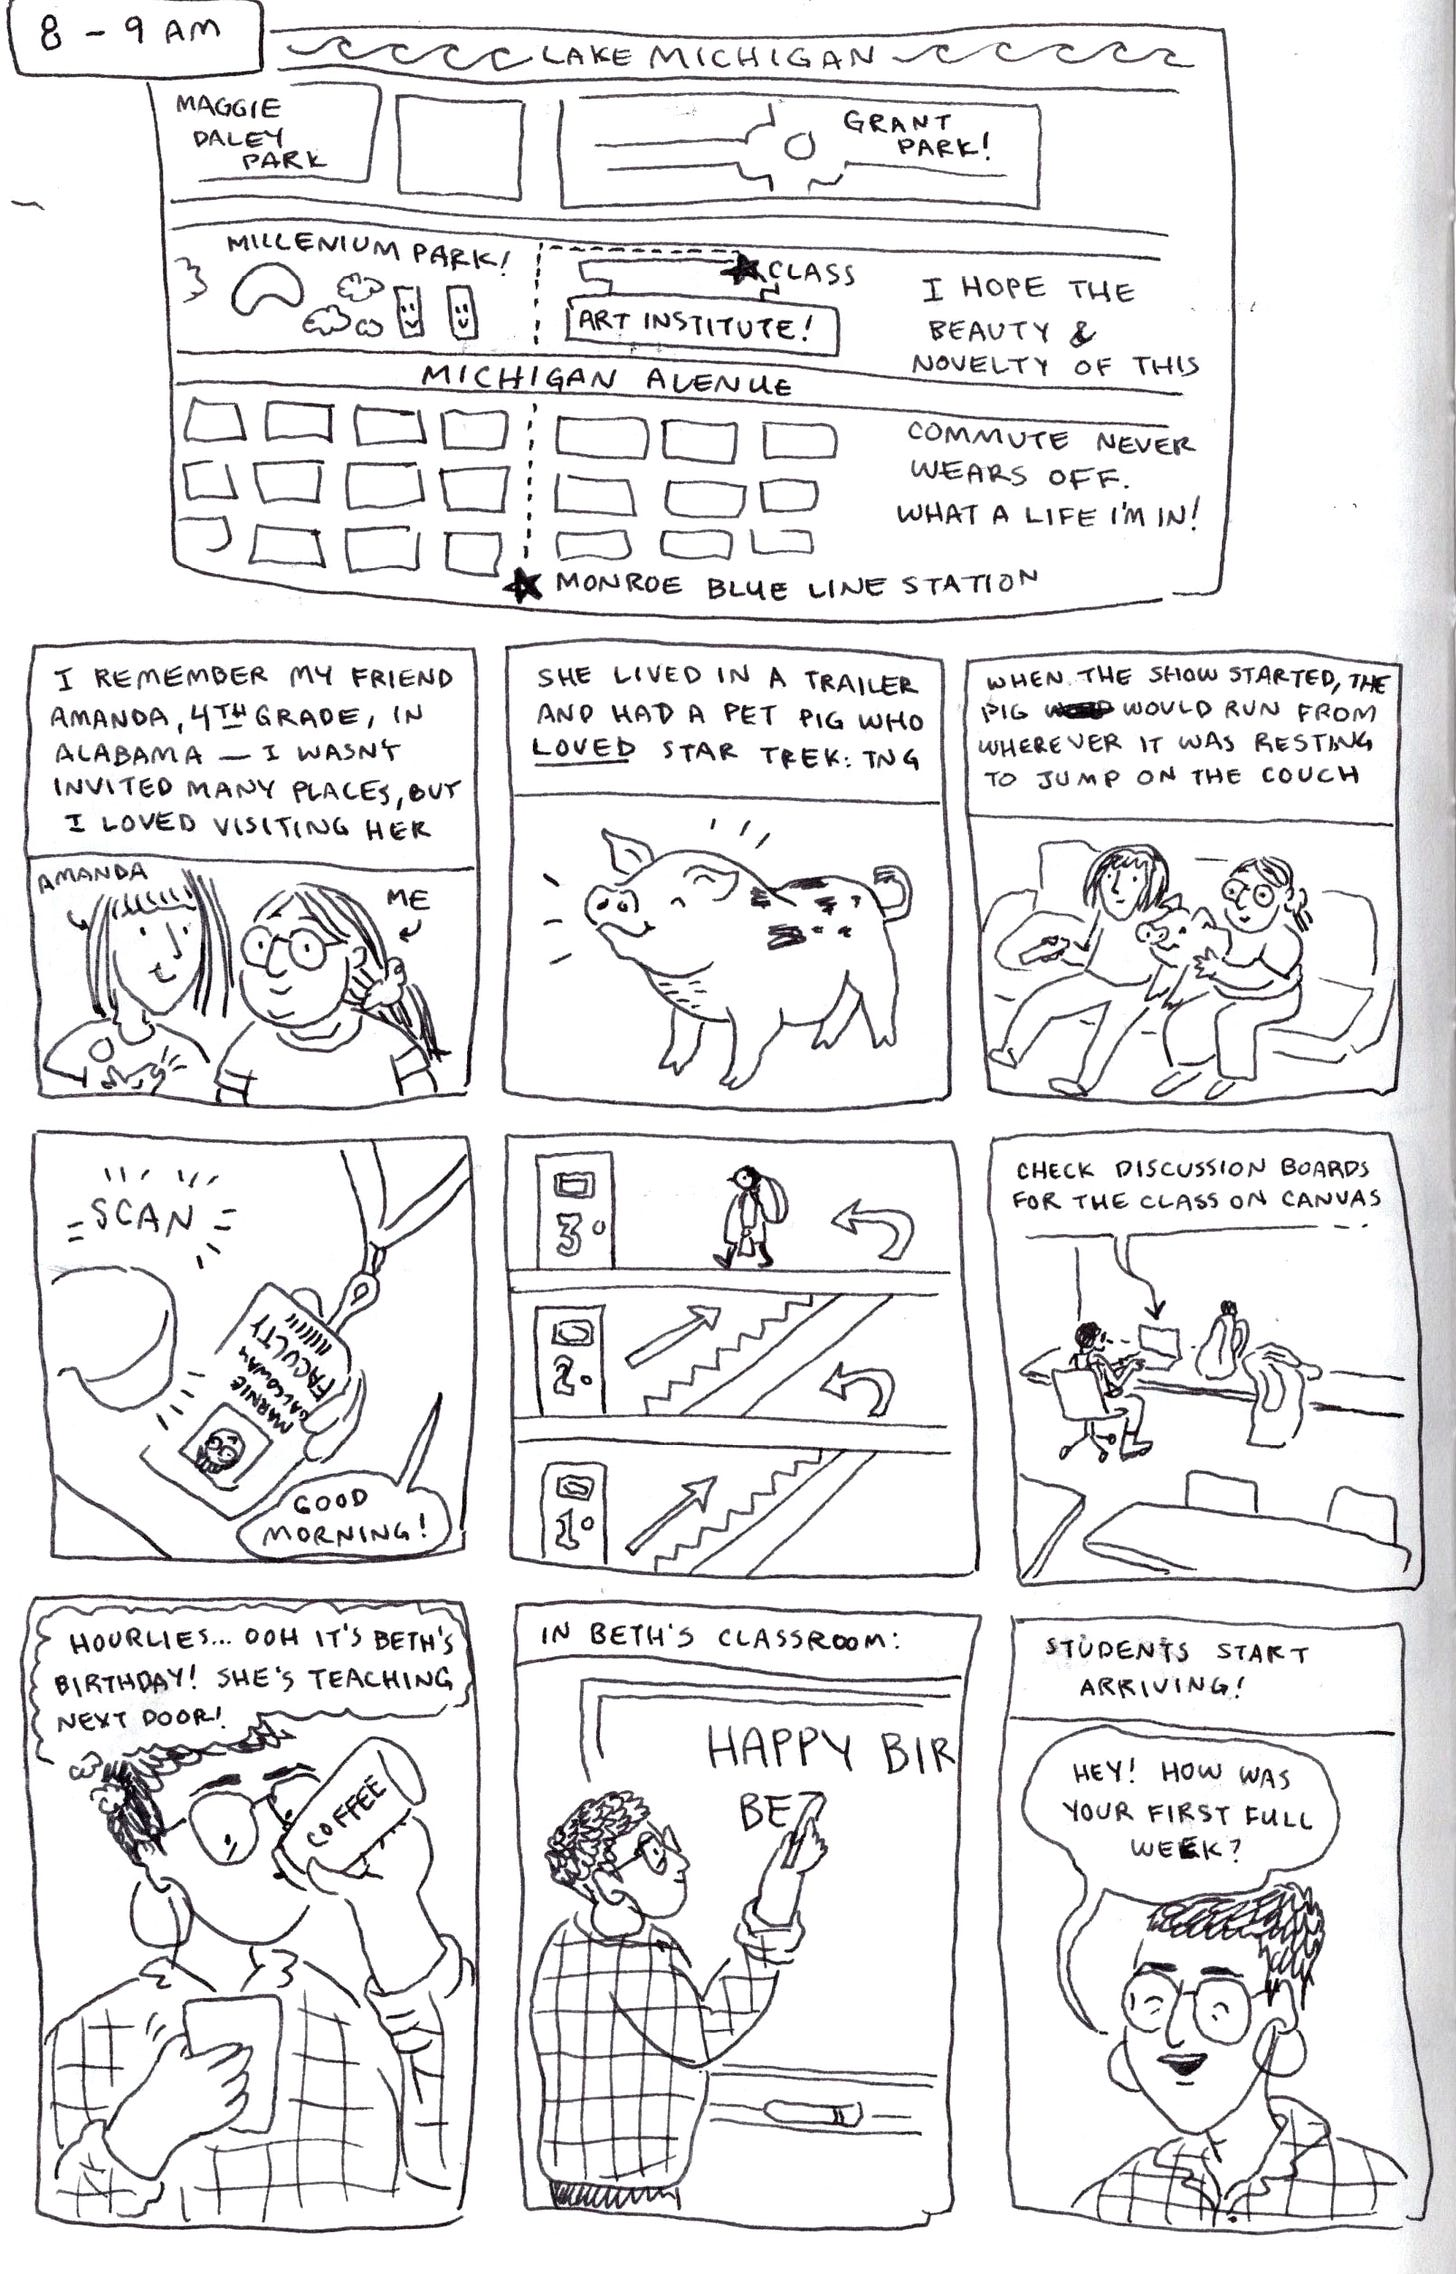 8 - 9 AM
LAKE MICHIGAN
MAGGIE
DALEY
PARK
GRANT
PARK!
MILLENIUM PARK!
CLASS
ART INSTITUTE!
I HOPE THE
BEAUTY &
NOVELTY OF THIS
MICHIGAN AVENUE
COMMUTE NEVER
WEARS OFF.
WHAT A LIFE I'M IN!
MONROE BLUE LINE STATION
I REMEMBER MY FRIEND
AMANDA, 4TH GRADE, IN
ALABAMA — I WASN'T
INVITED MANY PLACES, BUT
I LOVED VISITING HER
AMANDA
ME
SHE LIVED IN A TRAILER
AND HAD A PET PIG WHO
LOVED STAR TREK: TNG
WHEN THE SHOW STARTED, THE
PIG WOULD RUN FROM
WHEREVER IT WAS RESTING
TO JUMP ON THE COUCH
SCAN
FACULTY
MARNIE
GALLOWAY
GOOD
MORNING!
3
2
1
CHECK DISCUSSION BOARDS
FOR THE CLASS ON CANVAS
HOURLIES... OOH IT'S BETH'S
BIRTHDAY! SHE'S TEACHING
NEXT DOOR!
COFFEE
IN BETH'S CLASSROOM:
HAPPY BIR
BET
STUDENTS START
ARRIVING!
HEY! HOW WAS
YOUR FIRST FULL
WEEK?